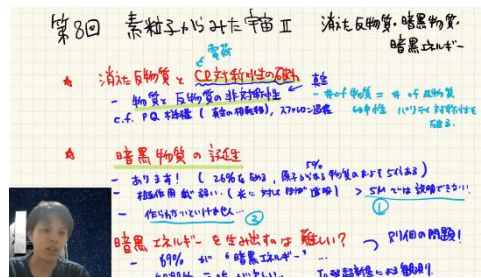 第8回 素粒子からみた宇宙 II
消えた反物質・暗黒物質・
暗黒エネルギー
電荷
★ 消えた反物質と CP対称性の破れ
- 物質と反物質の非対称性
- #of 物質 = # of 反物質
c.f. PQ 機構 (真空の相転移), スファレロン過程
パリティ対称性を
破る.
★ 暗黒物質の証拠
5%
- あります! (26%を占め, 原子から成る物質のおよそ5倍ある)
- 相互作用が弱い. (光に対してほぼ透明) > SMでは説明できない.
- 作られないといけません... ②
①
暗黒エネルギーを生み出すのは難しい?
別個の問題!
- 69% が "暗黒エネルギー" ...
Ia型超新星による観測